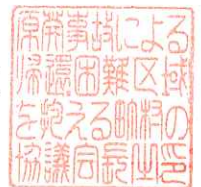 原発事故による
帰還困難区域
を抱える町村の
協議会長之印